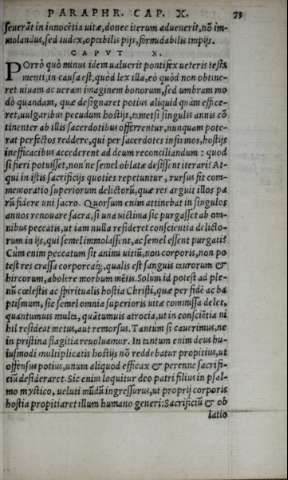 PARAPHR. CAP. X. 73
seuerāt in innocētia uitæ, donec iterum aduenerit, nō im-
molandus, sed iudex, optabilis pijs, formidabilis impijs.
CAPVT X.
PORRò quò minus idem ualuerit pontifex ueteris testa
menti, in causa est, quòd lex illa, eò quòd non obtine-
ret uiuam ac ueram imaginem bonorum, sed umbram mo
dò quandam, quæ designaret potius aliquid quàm effice-
ret, uulgaribus pecudum hostijs, tametsi singulis annis cō
tinenter ab illis sacerdotibus offerrentur, nunquam pote-
rat perfectos reddere, qui per sacerdotes infirmos, hostijs
inefficacibus accederent ad deum reconciliandum: quod
si fieri potuisset, non'ne semel oblatæ desissent iterari? At-
qui in istis sacrificijs quoties repetuntur, rursus fit com-
memoratio superiorum delictorū, quæ res arguit illos pa
rū fidere uni sacro. Quorsum enim attinebat in singulos
annos renouare sacra, si una uictima sic purgasset ab om-
nibus peccatis, ut iam nulla resideret conscientia delicto-
rum in ijs, qui semel immolassent, ac semel essent purgati?
Cùm enim peccatum sit animi uitiū, non corporis, non po
test res crassa corporeaq́;, qualis est sanguis taurorum &
hircorum, abolere morbum mētis. Solum id potest ad ple-
nū cælestis ac spiritualis hostia Christi, quæ per fidē ac ba
ptismum, sic semel omnia superioris uitæ commissa delet,
quantumuis multa, quātumuis atrocia, ut in consciētia ni
hil resideat metus, aut remorsus. Tantùm si cauerimus, ne
in pristina flagitia reuoluamur. In tantum enim deus hu-
iusmodi multiplicatis hostijs nō reddebatur propitius, ut
offensus potius, unum aliquod efficax & perenne sacrifi-
ciū desideraret. Sic enim loquitur deo patri filius in psal-
mo mystico, ueluti mūdū ingressurus, ut proprij corporis
hostia propitiaret illum humano generi: Sacrificiū & ob
latio